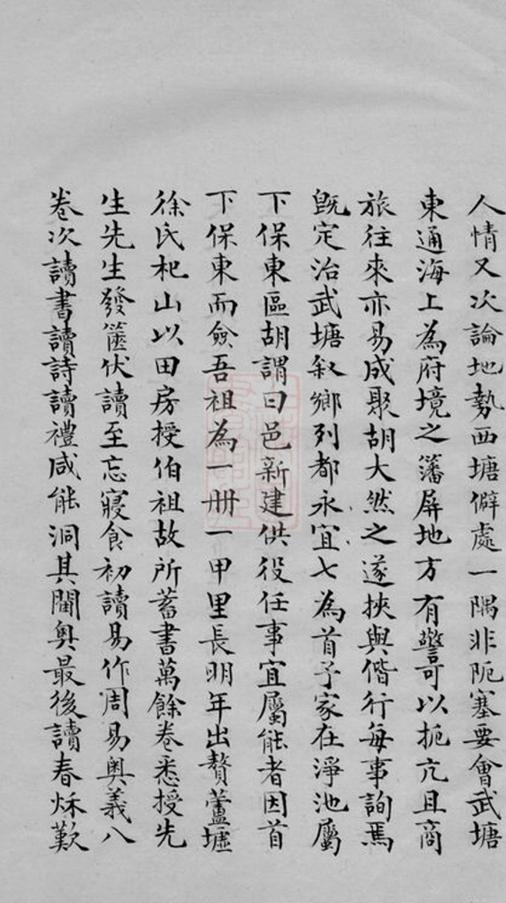 人情又次論地勢西塘僻處一隅非阨塞要會武塘
東通海上為府境之藩屏地方有警可以扼亢且商
旅往來亦易成聚胡大然之遂挾與偕行每事詢焉
既定治武塘叙鄉列都永宜七為首予家在淨池屬
下保東區胡謂曰邑新建供役任事宜屬能者因首
下保東而僉吾祖為一冊一甲里長明年出贅蘆墟
徐氏杝山以田房授伯祖故所蓄書萬餘卷悉授先
生先生發篋伏讀至忘寢食初讀易作周易奧義八
卷次讀書讀詩讀禮咸能洞其閫奧最後讀春秌歎